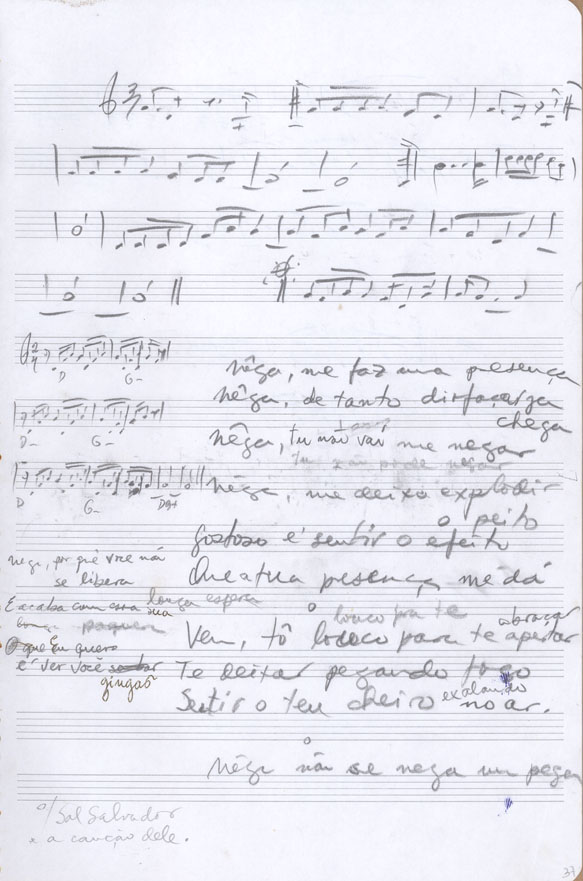 D G-
nêga, me faz uma presença
nêga, de tanto disfaçarza
chega
D- G-
nêga, tu não vai me negar
nêga, me deixa explodir
D G- D9+
o peito
gostoso é sentir o efeito
nega, por quê você não
se libera
Que a tua presença me dá
E acaba com essa sua longa espera
louco pra te abraçar
Vem, tô louco para te apertar
O que Eu quero
é ver você sambar
gingar
Te deixar pegando fogo
Sentir o teu cheiro exalando no ar.
Nêga não se nega um pega
p/ Sol Salvador
a canção dele.
37